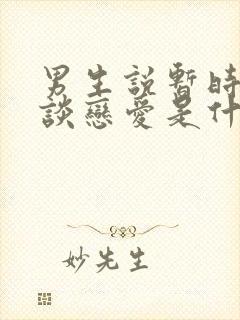 男生說暫時
談戀愛是什
妙先生